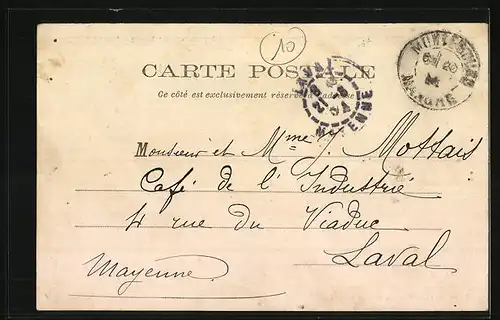 10
CARTE POSTALE
Ce côté est exclusivement réservé à l'adresse
LAVAL
MAYENNE
Monsieur et Mme J. Mottais
Café de l'Industrie
4 rue du Viaduc
Laval
Mayenne